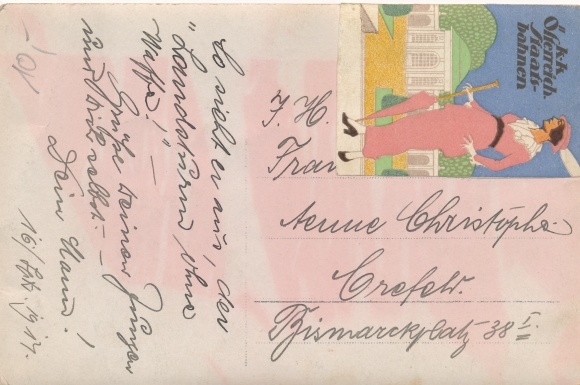 10.-
So sieht er aus, der
"Landsturm ohne
Waffe!" –
Grüße Deinen Jungen
und Dich selbst. –
Dein
16/Spt. 1917.
K. k.
Österreich.
Staats-
bahnen
H.
Aenne Christophe.
Crefeld.
Bismarckplatz 38 I.